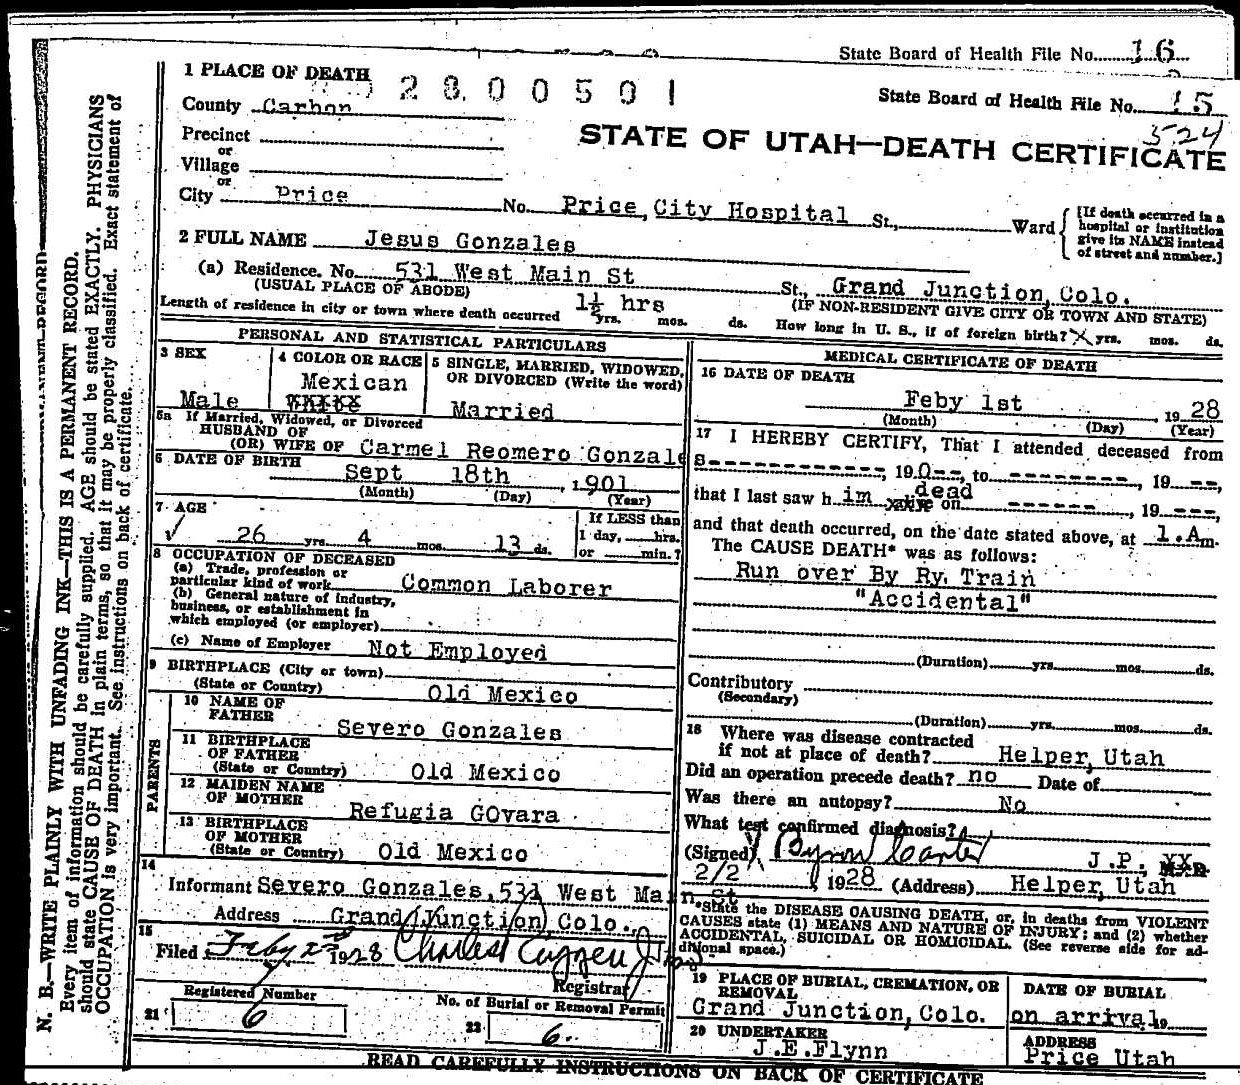 State Board of Health File No. 16
1 PLACE OF DEATH
2800501
State Board of Health File No. 15
524
County Carbon
STATE OF UTAH—DEATH CERTIFICATE
Precinct
or
Village
or
City Price No. Price City Hospital St., Ward
[If death occurred in a hospital or institution give its NAME instead of street and number.]
2 FULL NAME Jesus Gonzales
(a) Residence. No. 531 West Main St St., Grand Junction, Colo.
(USUAL PLACE OF ABODE) (IF NON-RESIDENT GIVE CITY OR TOWN AND STATE)
Length of residence in city or town where death occurred 1½ hrs yrs. mos. ds. How long in U. S., if of foreign birth? X yrs. mos. ds.
PERSONAL AND STATISTICAL PARTICULARS
3 SEX
Male
4 COLOR OR RACE
Mexican
5 SINGLE, MARRIED, WIDOWED, OR DIVORCED (Write the word)
Married
5a If Married, Widowed, or Divorced
HUSBAND OF
(OR) WIFE OF Carmel Reomero Gonzales
6 DATE OF BIRTH
Sept 18th, 1901
(Month) (Day) (Year)
7 AGE
26 yrs. 4 mos. 13 ds.
If LESS than
1 day, hrs.
or min.?
8 OCCUPATION OF DECEASED
(a) Trade, profession or
particular kind of work Common Laborer
(b) General nature of industry,
business, or establishment in
which employed (or employer)
(c) Name of Employer Not Employed
9 BIRTHPLACE (City or town)
(State or Country) Old Mexico
PARENTS
10 NAME OF
FATHER Severo Gonzales
11 BIRTHPLACE
OF FATHER
(State or Country) Old Mexico
12 MAIDEN NAME
OF MOTHER Refugia GOvara
13 BIRTHPLACE
OF MOTHER
(State or Country) Old Mexico
14
Informant Severo Gonzales, 531 West Main St
Address Grand Junction, Colo.
15
Filed Feby 2nd 1928 Charles
Registrar
Registered Number
21 6
No. of Burial or Removal Permit
22 6
MEDICAL CERTIFICATE OF DEATH
16 DATE OF DEATH
Feby 1st, 1928
(Month) (Day) (Year)
17 I HEREBY CERTIFY, That I attended deceased from
, 190--, to , 19 --,
that I last saw h im dead on , 19 ---,
and that death occurred, on the date stated above, at 1.A m.
The CAUSE DEATH* was as follows:
Run over By Ry. Train
"Accidental"
(Duration) yrs. mos. ds.
Contributory
(Secondary)
(Duration) yrs. mos. ds.
18 Where was disease contracted
if not at place of death? Helper, Utah
Did an operation precede death? no Date of
Was there an autopsy? No
What test confirmed diagnosis?
(Signed) Byron Carter J.P. XX M.D.
2/2, 1928 (Address) Helper, Utah
*State the DISEASE CAUSING DEATH, or, in deaths from VIOLENT
CAUSES state (1) MEANS AND NATURE OF INJURY; and (2) whether
ACCIDENTAL, SUICIDAL OR HOMICIDAL. (See reverse side for ad-
ditional space.)
19 PLACE OF BURIAL, CREMATION, OR
REMOVAL
Grand Junction, Colo.
DATE OF BURIAL
on arrival 19
20 UNDERTAKER
J.E.Flynn
ADDRESS
Price Utah
READ CAREFULLY INSTRUCTIONS ON BACK OF CERTIFICATE
N. B.—WRITE PLAINLY WITH UNFADING INK—THIS IS A PERMANENT RECORD.
Every item of information should be carefully supplied. AGE should be stated EXACTLY. PHYSICIANS
should state CAUSE OF DEATH in plain terms, so that it may be properly classified. Exact statement of
OCCUPATION is very important. See instructions on back of certificate.